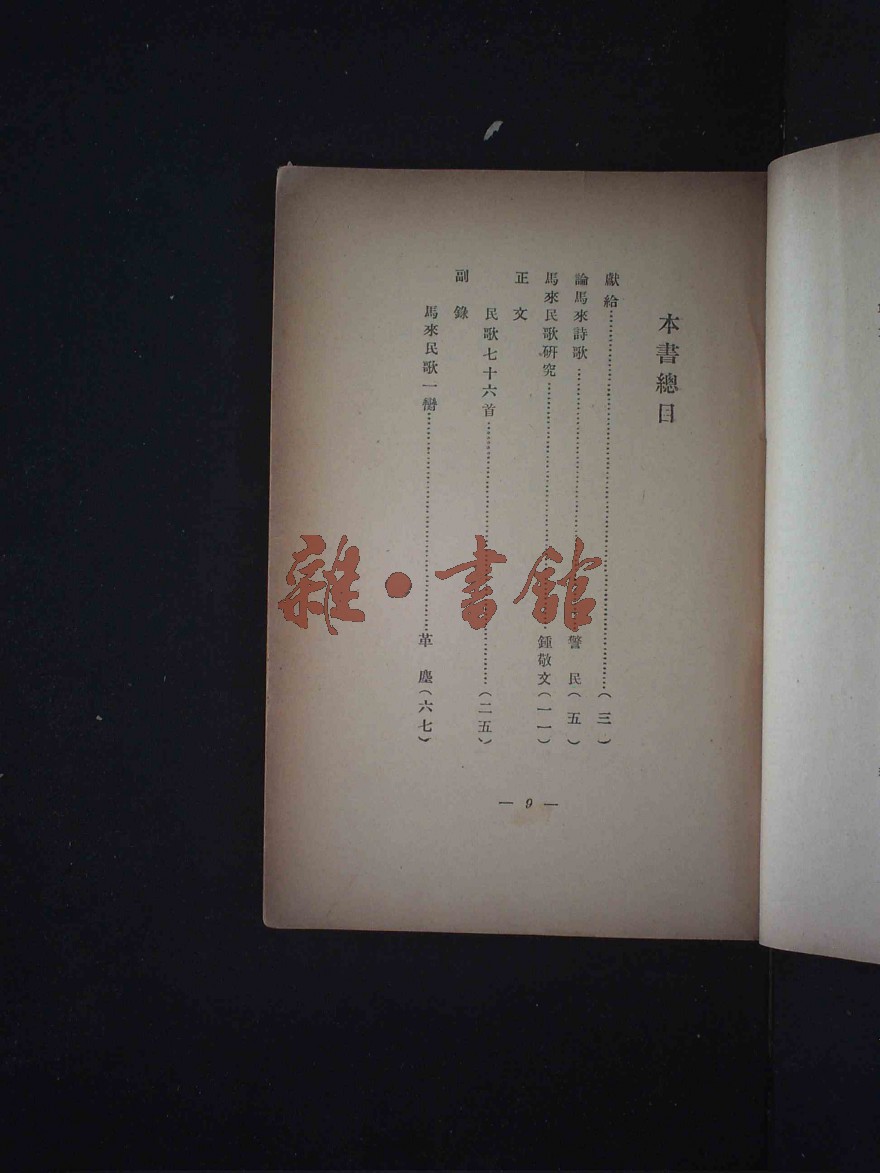 本書總目
獻給……（三）
論馬來詩歌……警民（五）
馬來民歌研究……鍾敬文（一一）
正文
民歌七十六首……（二五）
副錄
馬來民歌一臠……革塵（六七）
— 9 —
雜·書館